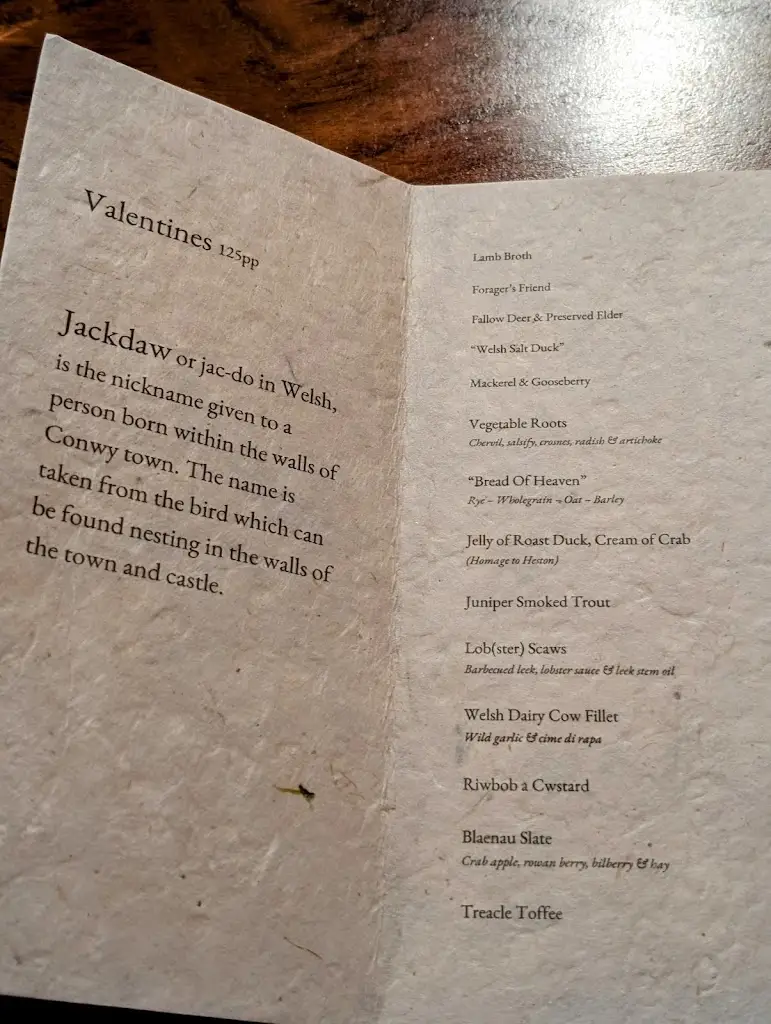 Valentines 125pp
Jackdaw or jac-do in Welsh,
is the nickname given to a
person born within the walls of
Conwy town. The name is
taken from the bird which can
be found nesting in the walls of
the town and castle.
Lamb Broth
Forager's Friend
Fallow Deer & Preserved Elder
"Welsh Salt Duck"
Mackerel & Gooseberry
Vegetable Roots
Chervil, salsify, crosnes, radish & artichoke
"Bread Of Heaven"
Rye – Wholegrain – Oat – Barley
Jelly of Roast Duck, Cream of Crab
(Homage to Heston)
Juniper Smoked Trout
Lob(ster) Scaws
Barbecued leek, lobster sauce & leek stem oil
Welsh Dairy Cow Fillet
Wild garlic & cime di rapa
Riwbob a Cwstard
Blaenau Slate
Crab apple, rowan berry, bilberry & hay
Treacle Toffee